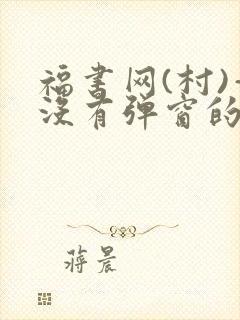 福书网(村)-
没有弹窗的
蒋晨